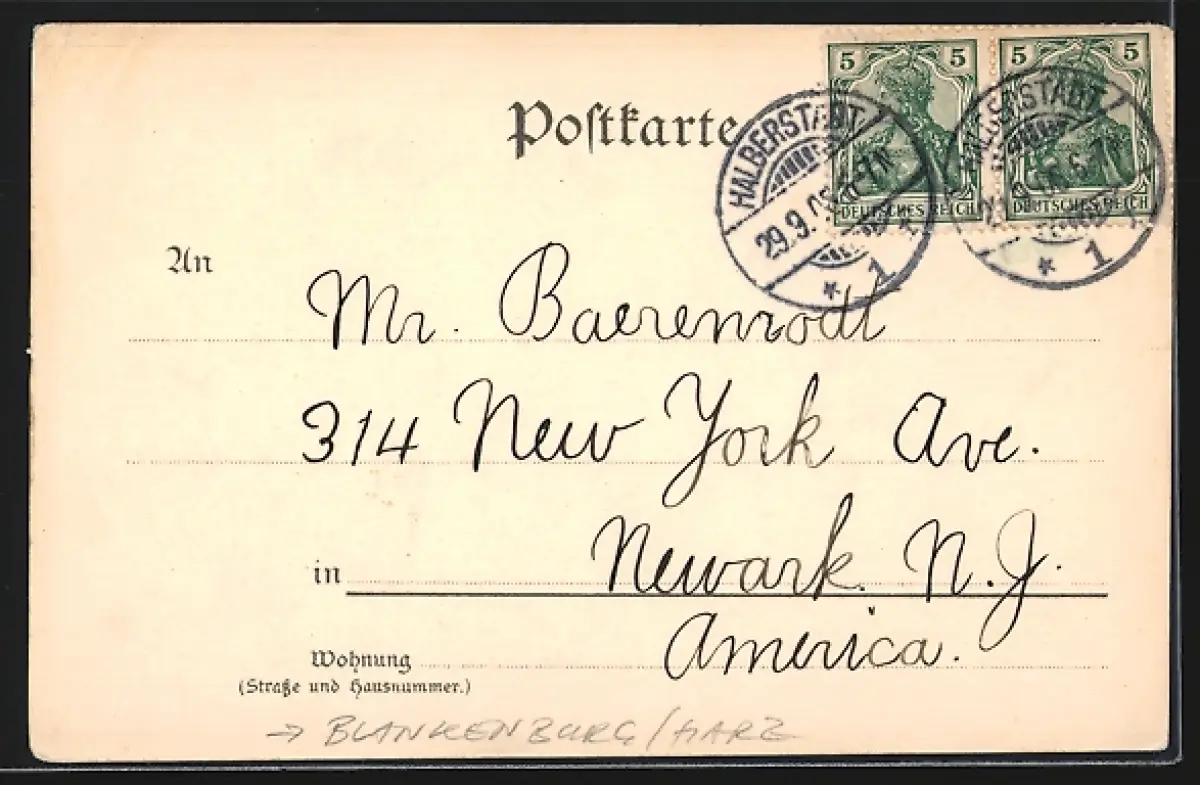 Postkarte
5 5 5 5
DEUTSCHES REICH DEUTSCHES REICH
HALBERSTADT HALBERSTADT
29.9.
* 1 * * 1
An
Mr. Baerenrodt
314 New York Ave.
in Newark. N. J.
America.
Wohnung
(Straße und Hausnummer.)
→ BLANKENBURG/HARZ